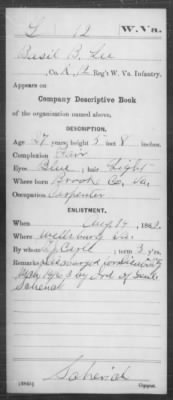 L 12 W. Va.
Basil B. Lee
, Co. K, 12 Reg't W. Va. Infantry.
Appears on
Company Descriptive Book
of the organization named above.
DESCRIPTION.
Age 27 years; height 5 feet 8 inches.
Complexion Fair
Eyes Blue; hair Light
Where born Brook Co, Va.
Occupation Carpenter
ENLISTMENT.
When Aug 14, 1862.
Where Wellsburg Va.
By whom ; term 3 y'rs.
Remarks Discharged for disability
1863 by Ord of Genl
Schenck
Schenck
Copyist.